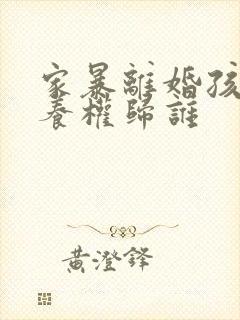 家暴離婚孩
養權歸誰
黃澄鋒